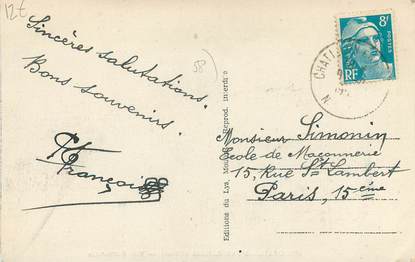 12€
Sincères salutations.
Bons souvenirs.
François
58
Editions du Lys, Reprod. interdite
8F
POSTES
RF
CHATI
N
Monsieur Simonin
Ecole de Maçonnerie
15, Rue St Lambert
Paris, 15ème